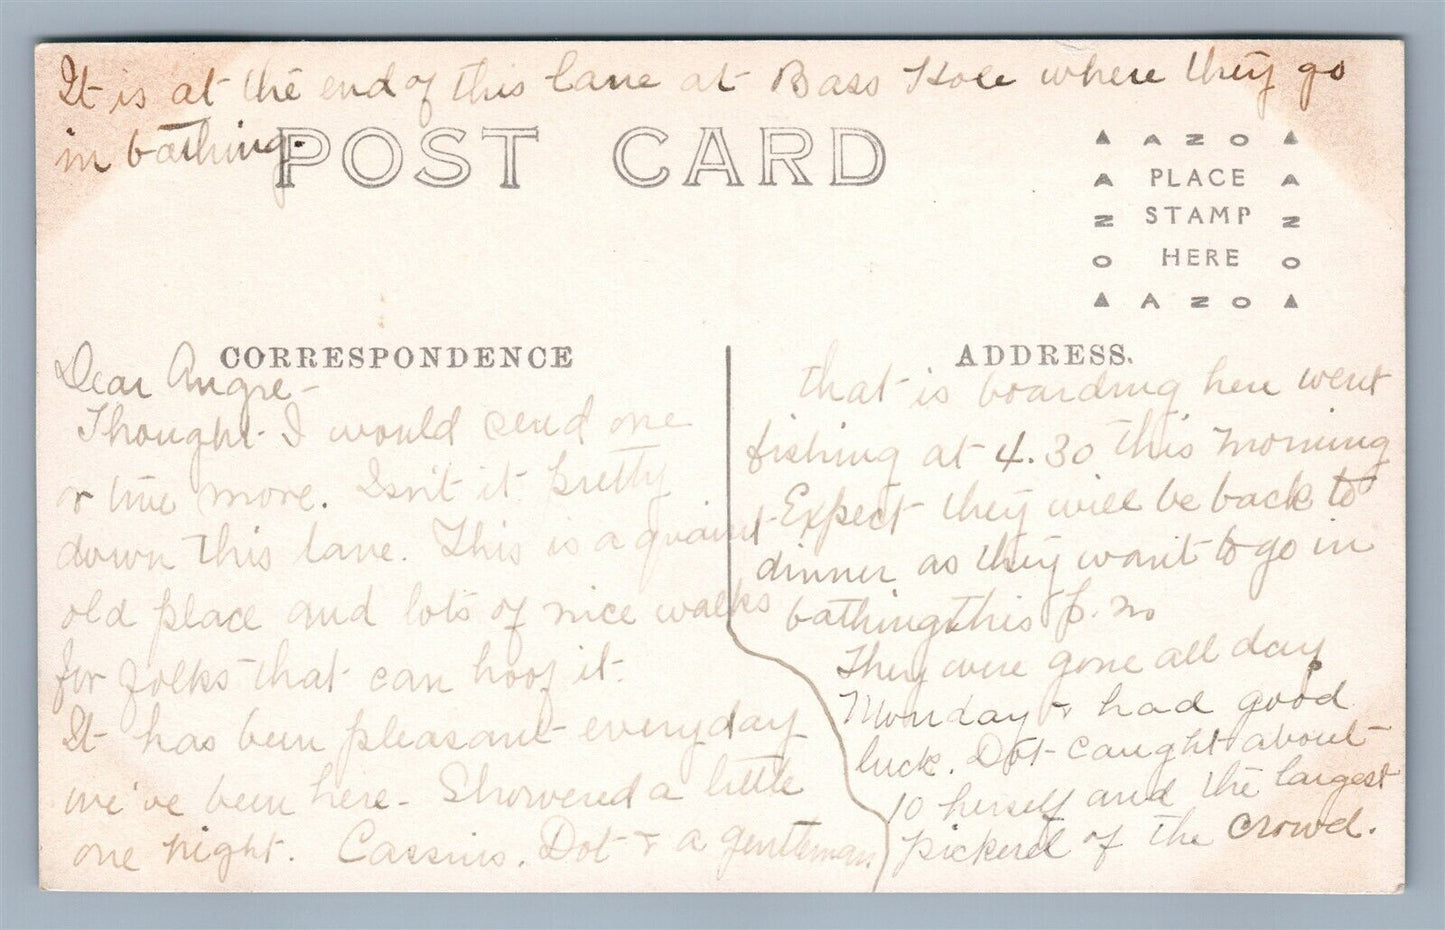 It is at the end of this lane at Bass Hole where they go
in bathing.
POST CARD
AZO
PLACE
STAMP
HERE
AZO
CORRESPONDENCE
Dear Angie-
Thought I would send one
or two more. Isn't it pretty
down this lane. This is a quaint
old place and lots of nice walks
for folks that can hoof it.
It has been pleasant everyday
we've been here- Showered a little
one night. Cassius, Dot & a gentleman
ADDRESS.
that is boarding here went
fishing at 4.30 this morning
Expect they will be back to
dinner as they want to go in
bathing this p.m.
They were gone all day
Monday & had good
luck. Dot caught about
10 herself and the largest
pickerel of the crowd.